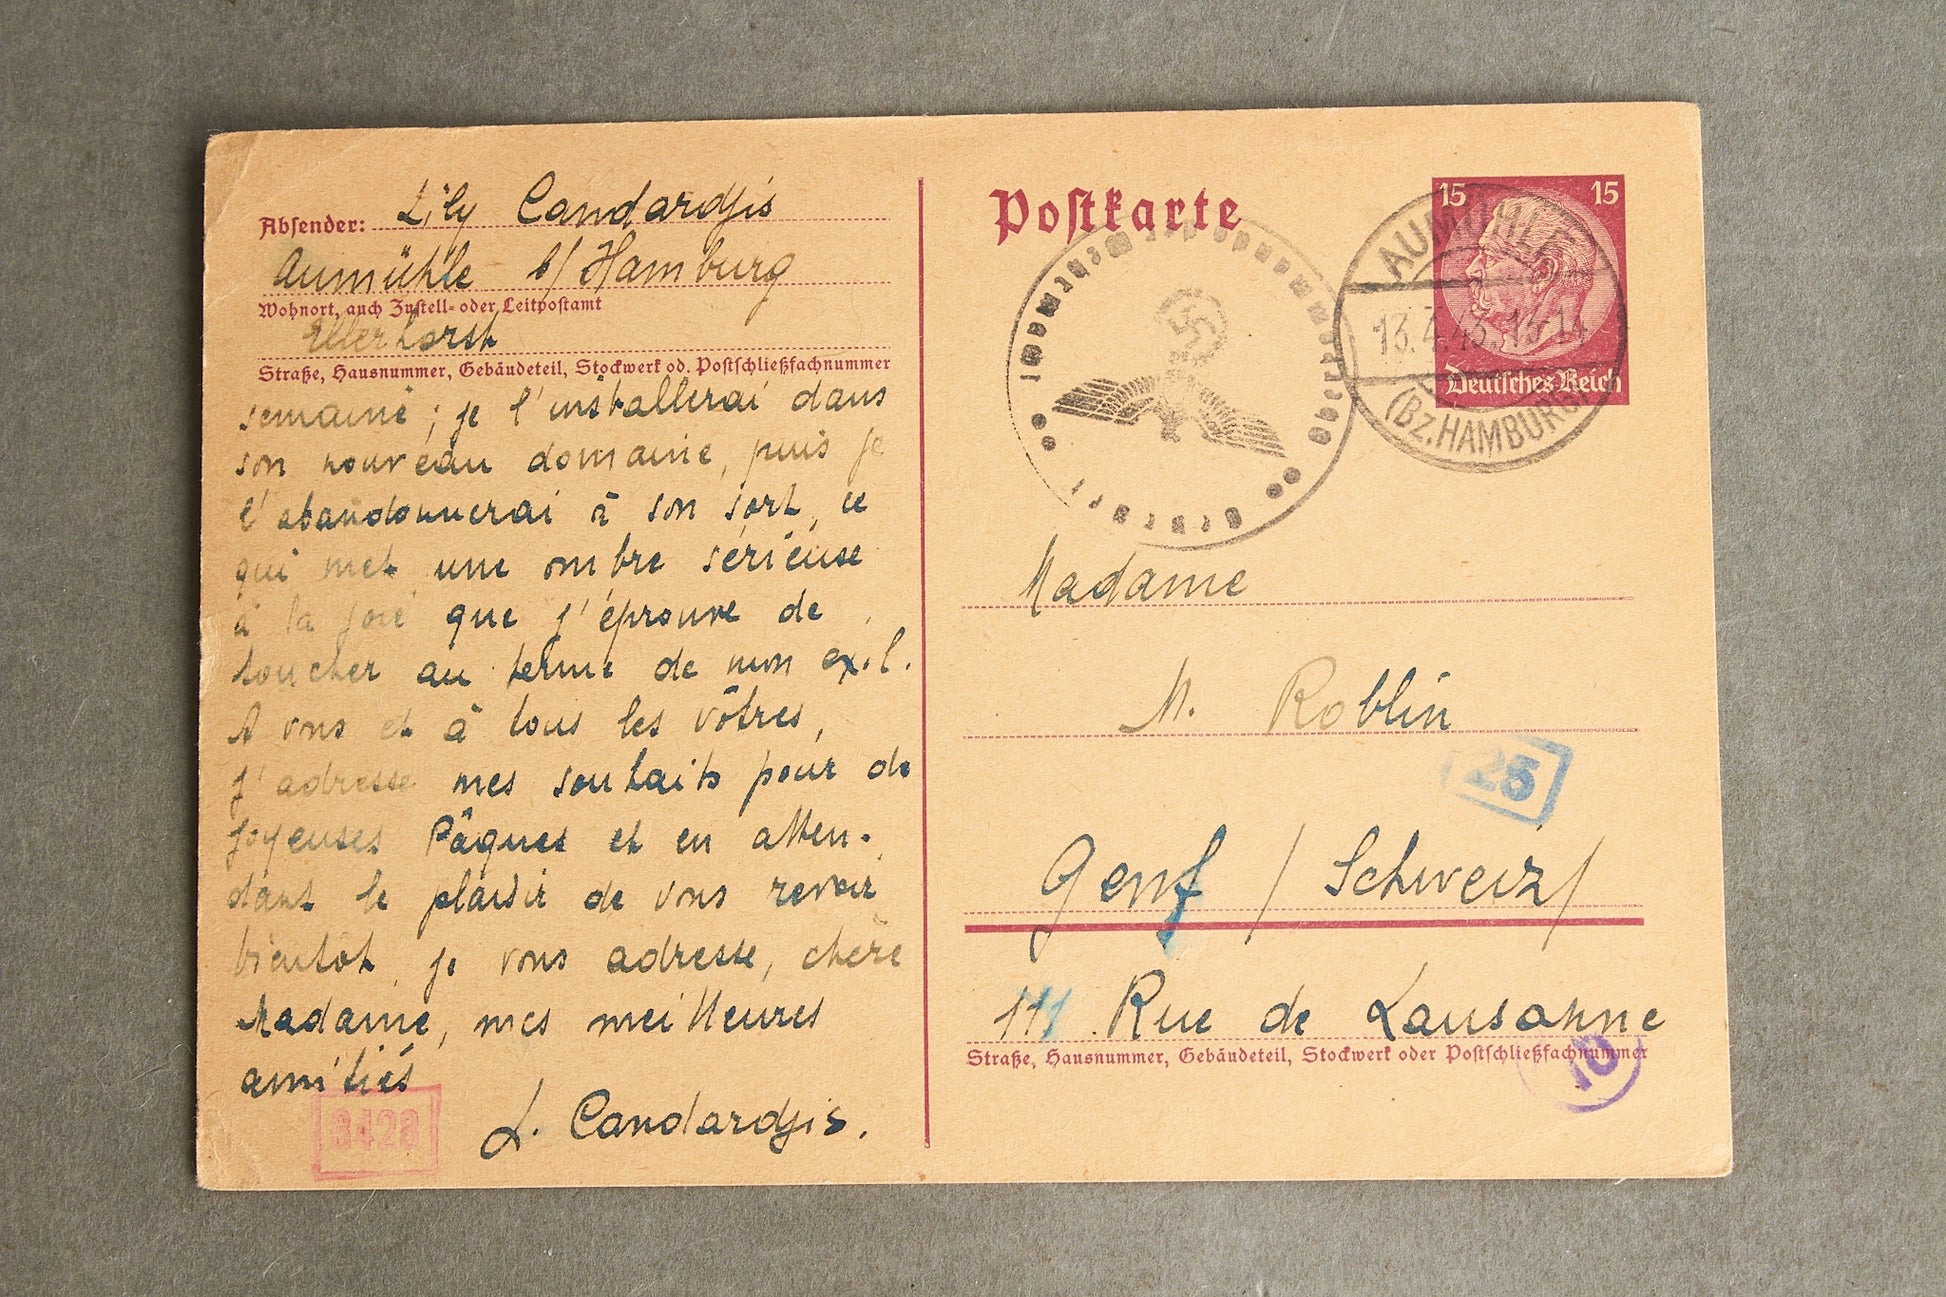 Absender: Lily Candardjis
Aumühle b/Hamburg
Wohnort, auch Zustell- oder Leitpostamt
Ellerhorst
Straße, Hausnummer, Gebäudeteil, Stockwerk od. Postschließfachnummer
semaine ; je l'installerai dans
son nouveau domaine, puis je
l'abandonnerai à son sort, ce
qui met une ombre sérieuse
à la joie que j'éprouve de
toucher au terme de mon exil.
A vous et à tous les vôtres,
j'adresse mes souhaits pour de
joyeuses Pâques et en atten-
dant le plaisir de vous revoir
bientôt je vous adresse, chère
Madame, mes meilleures
amitiés
L. Candardjis.
3428
Postkarte
15 15
Deutsches Reich
AUMÜHLE
13.4.43.13-14
(Bz. HAMBURG)
Oberkommando der Wehrmacht
Geprüft
Madame
M. Roblin
25
Genf / Schweiz /
111 Rue de Lausanne
Straße, Hausnummer, Gebäudeteil, Stockwerk oder Postschließfachnummer
10